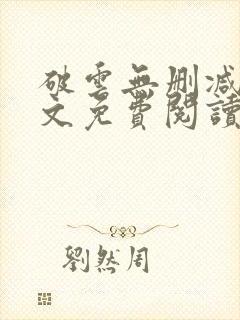 破雲無刪減
文免費閱讀
劉然周